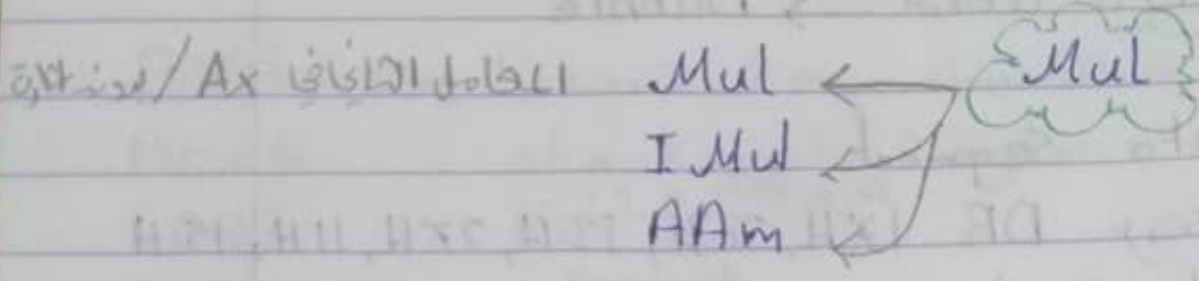 Mul ← Mul المعامل الثاني Ax / بدون إشارة
I Mul
AAm